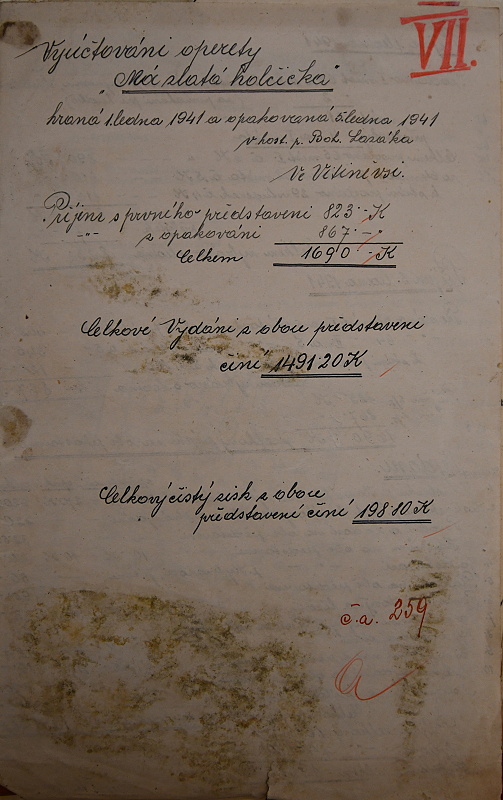 VII.
Vyúčtování operety
"Má zlatá holčička"
hraná 1. ledna 1941 a opakovaná 5. ledna 1941
v host. p. Boh. Lazáka
Ve Vitiněvsi.
Příjem s prvního představení 823·- K
-"- z opakování 867·-
Celkem 1690·- K
Celkové Vydání z obou představení
činí 1491·20 K
Celkový čistý zisk z obou
představení činí 198·80 K
č.a. 259